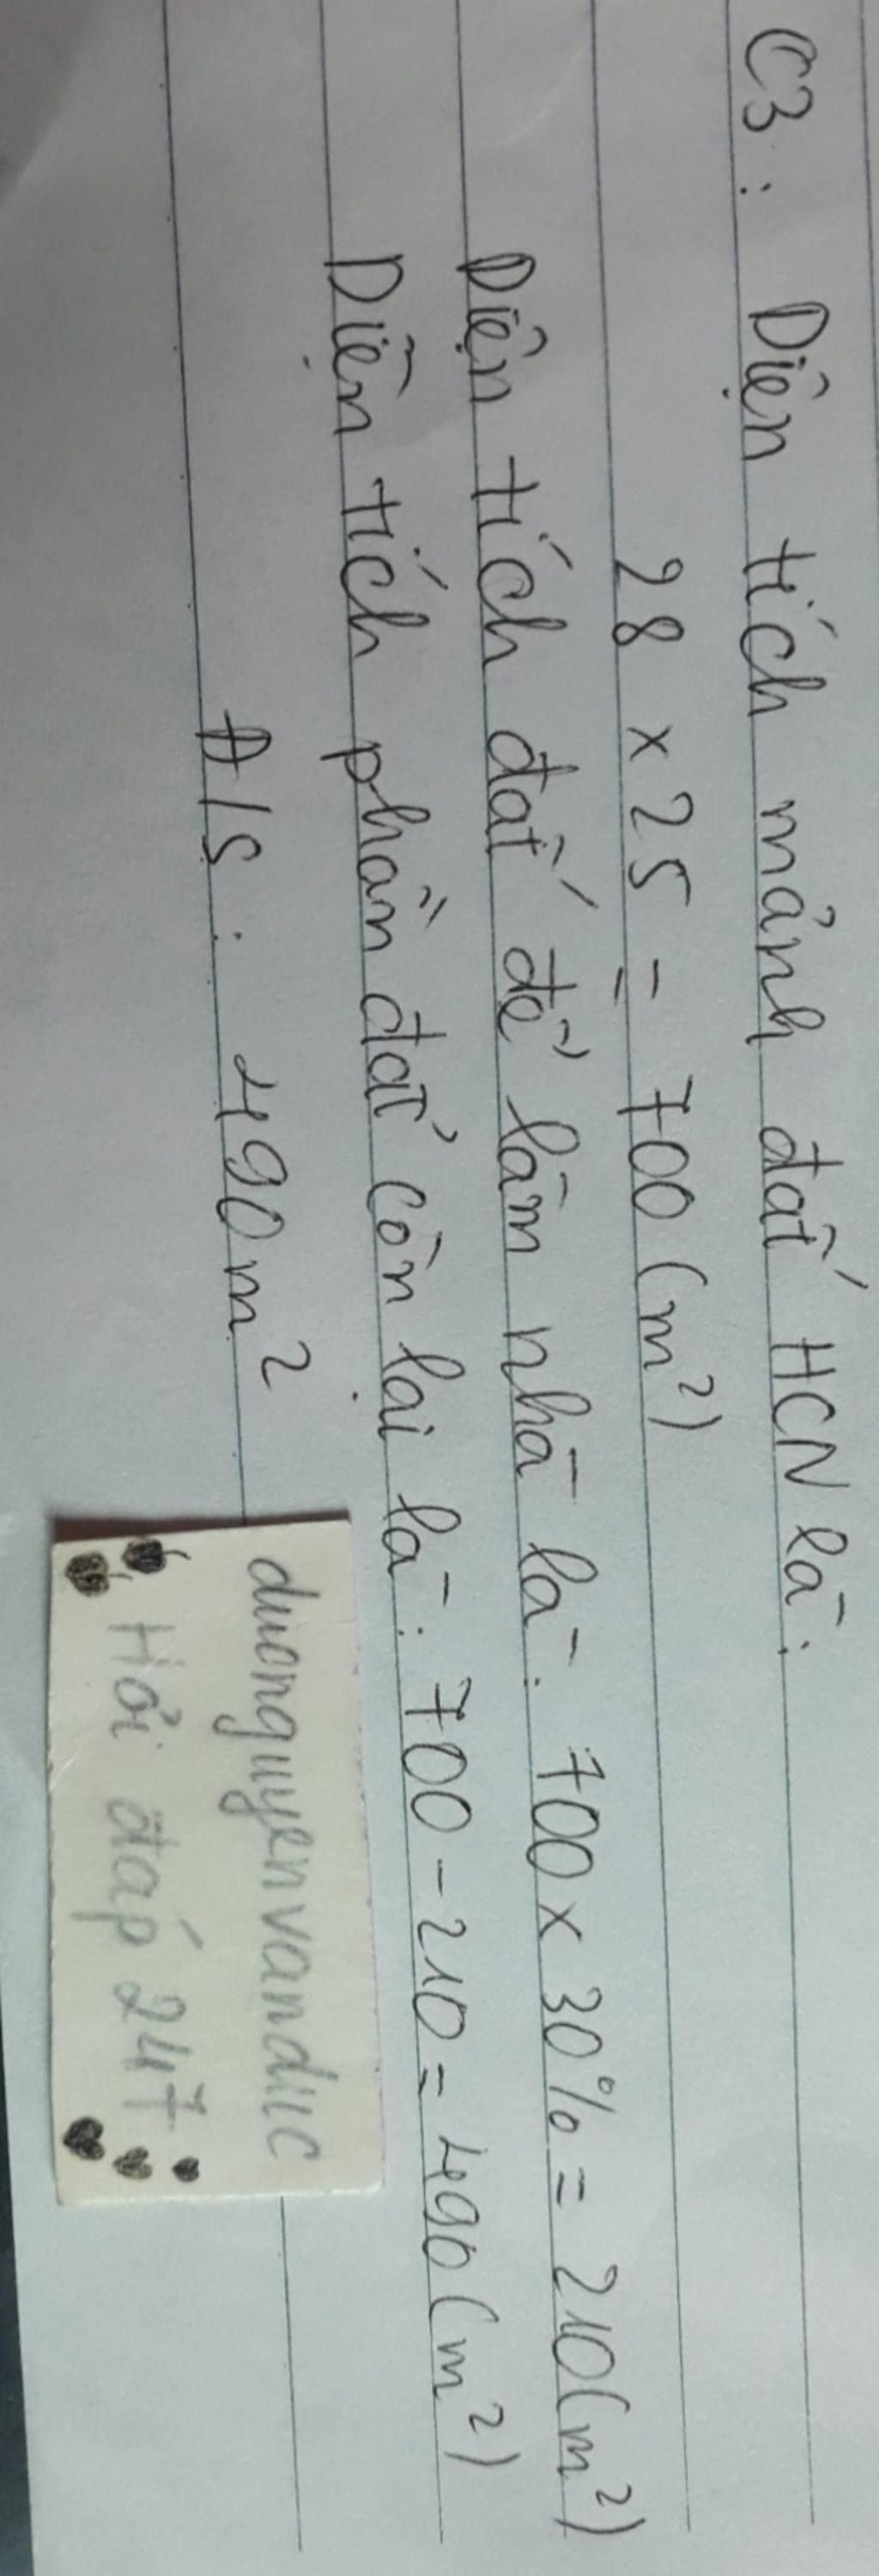 C3: Diện tích mảnh đất HCN là:
28 x 25 = 700 (m²)
Diện tích đất để làm nhà là: 700 x 30% = 210 (m²)
Diện tích phần đất còn lại là: 700 - 210 = 490 (m²)
Đ/S: 490m²
duonguyenvanduc
Hỏi đáp 247